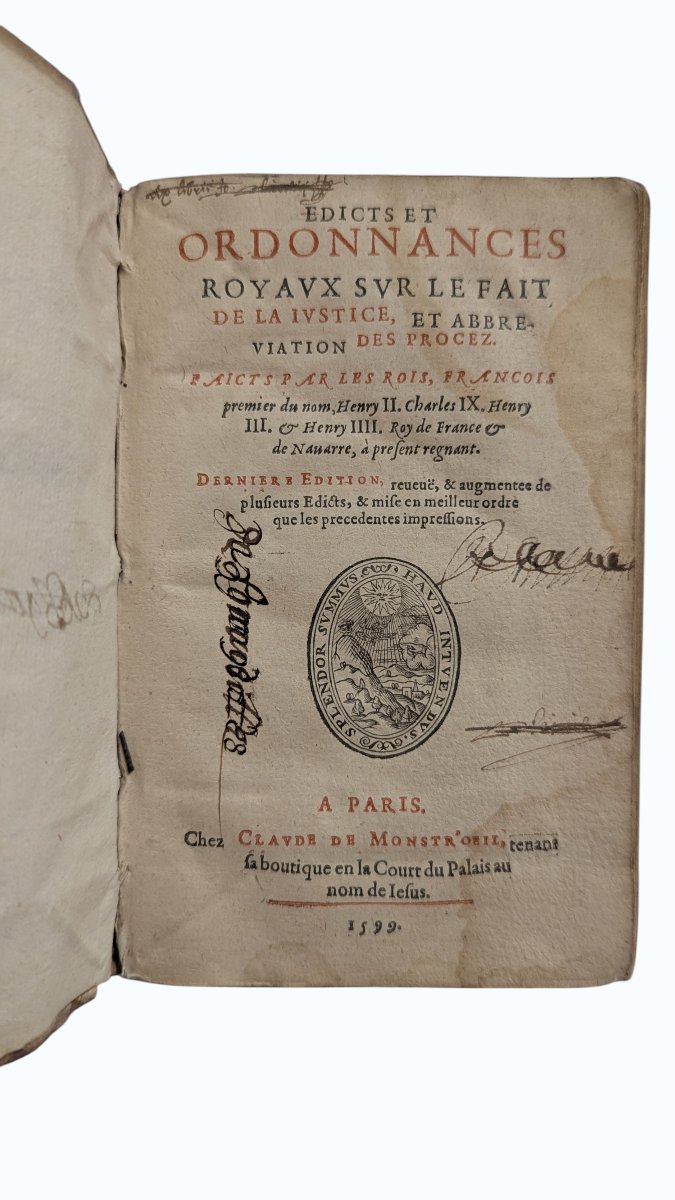 Ex libris
EDICTS ET
ORDONNANCES
ROYAVX SVR LE FAIT
DE LA IVSTICE, ET ABBRE-
VIATION DES PROCEZ.
FAICTS PAR LES ROIS, FRANCOIS
premier du nom, Henry II. Charles IX. Henry
III. & Henry IIII. Roy de France &
de Nauarre, à preſent regnant.
DERNIERE EDITION, reueuë, & augmentee de
pluſieurs Edicts, & miſe en meilleur ordre
que les precedentes impreſſions.
SPLENDOR SVMMVS HAVD INTVENDVS.
A PARIS.
Chez CLAVDE DE MONSTR'OEIL, tenant
ſa boutique en la Court du Palais au
nom de Ieſus.
1599.